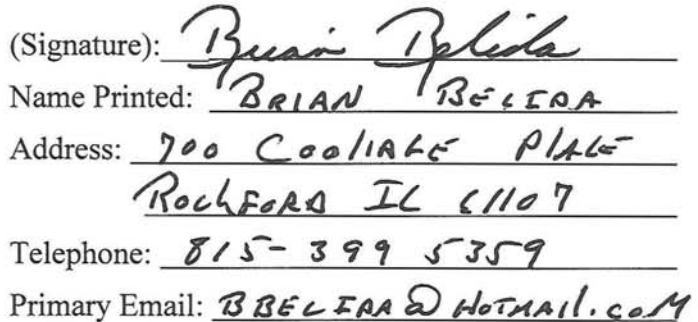 (Signature): Brian Belida
Name Printed: BRIAN BELIDA
Address: 700 Coolidge Place
Rockford IL 61107
Telephone: 815-399 5359
Primary Email: BBELIDA@HOTMAIL.COM